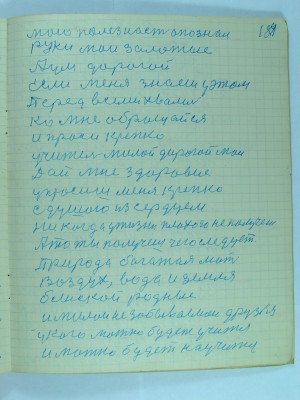 189
мою полезност опознал
руки мои золотые
Аум дорогой
если меня знаеш у этом
Перед всеми хвали
Ко мне обрасчайся
и проси крепко
учител милой дорогой мои
Дай мне здоровье
упросиш меня крепко
с душою из сердцем
Никогда у жизни плохого не получеш
А то ты получеш чего следует
Природа богатая мат
Воздух, вода и земля
близкой родные
и милои незабываемои друзья
у кого можно будет учится
и можно будет научится